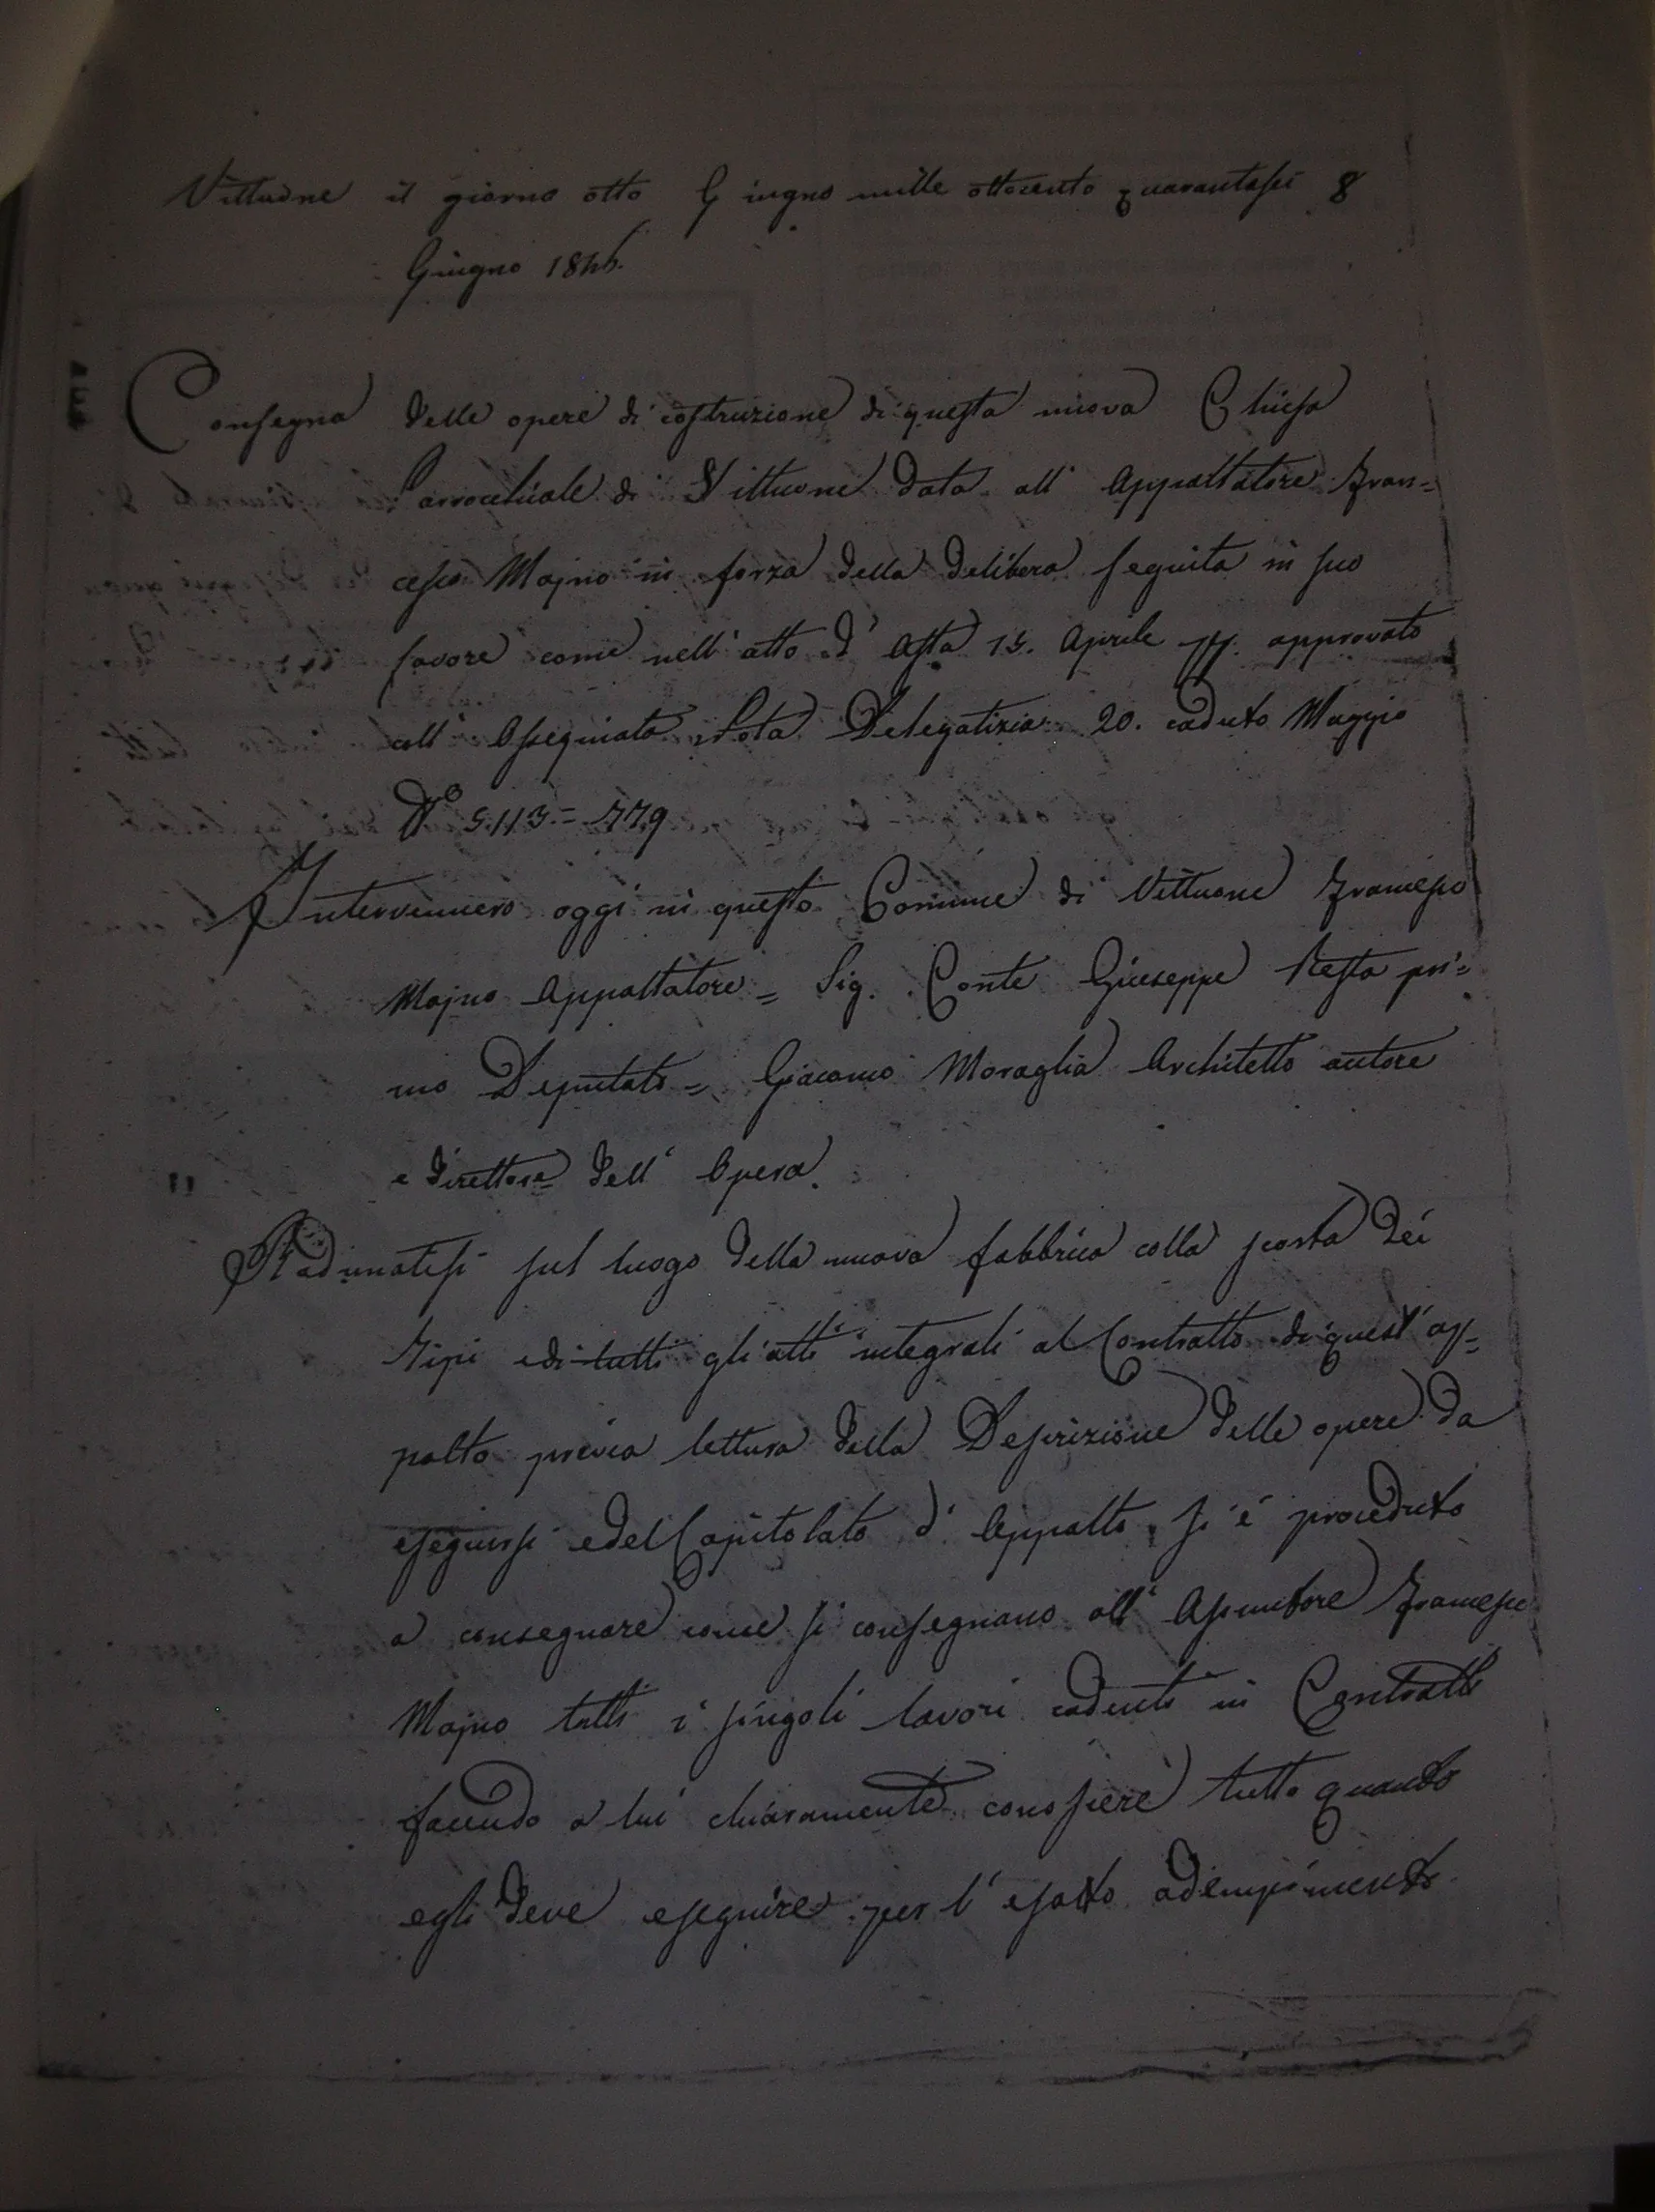 Vittuone il giorno otto Giugno mille ottocento quarantasei 8
Giugno 1846.
Consegna delle opere di costruzione di questa nuova Chiesa
Parrocchiale di Vittuone data all' Appaltatore Fran=
cesco Majno in forza della Delibera seguita in suo
favore come nell' atto d' Asta 15. Aprile pp. approvato
coll' Ossequiata Nota Delegatizia 20. caduto Maggio
N.° 5113=779
Intervennero oggi in questo Comune di Vittuone Francesco
Majno Appaltatore = Sig. Conte Giuseppe Resta pri=
mo Deputato = Giacomo Moraglia Architetto autore
e direttore dell' Opera.
Radunatisi sul luogo della nuova fabbrica colla scorta dei
Tipi e di tutti gli atti integrali al Contratto di quest' ap=
palto previa lettura della Descrizione delle opere da
eseguirsi e del Capitolato d' Appalto, si è proceduto
a consegnare come si consegnano all' Assuntore Francesco
Majno tutti i singoli lavori cadenti in Contratto
facendo a lui chiaramente conoscere tutto quanto
egli deve eseguire per l' esatto adempimento